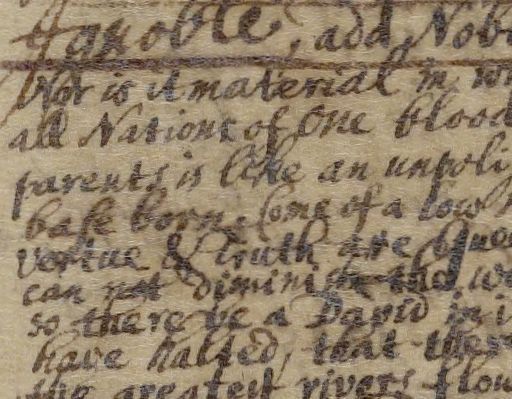 Ignoble, add Nob
Nor is it material in w
all Nations of One blood
parents is like an unpoli
base born, come of a low
vertue & truth are que
can not diminish the w
so there be a David in i
have halted, that ther
the greatest rivers flow